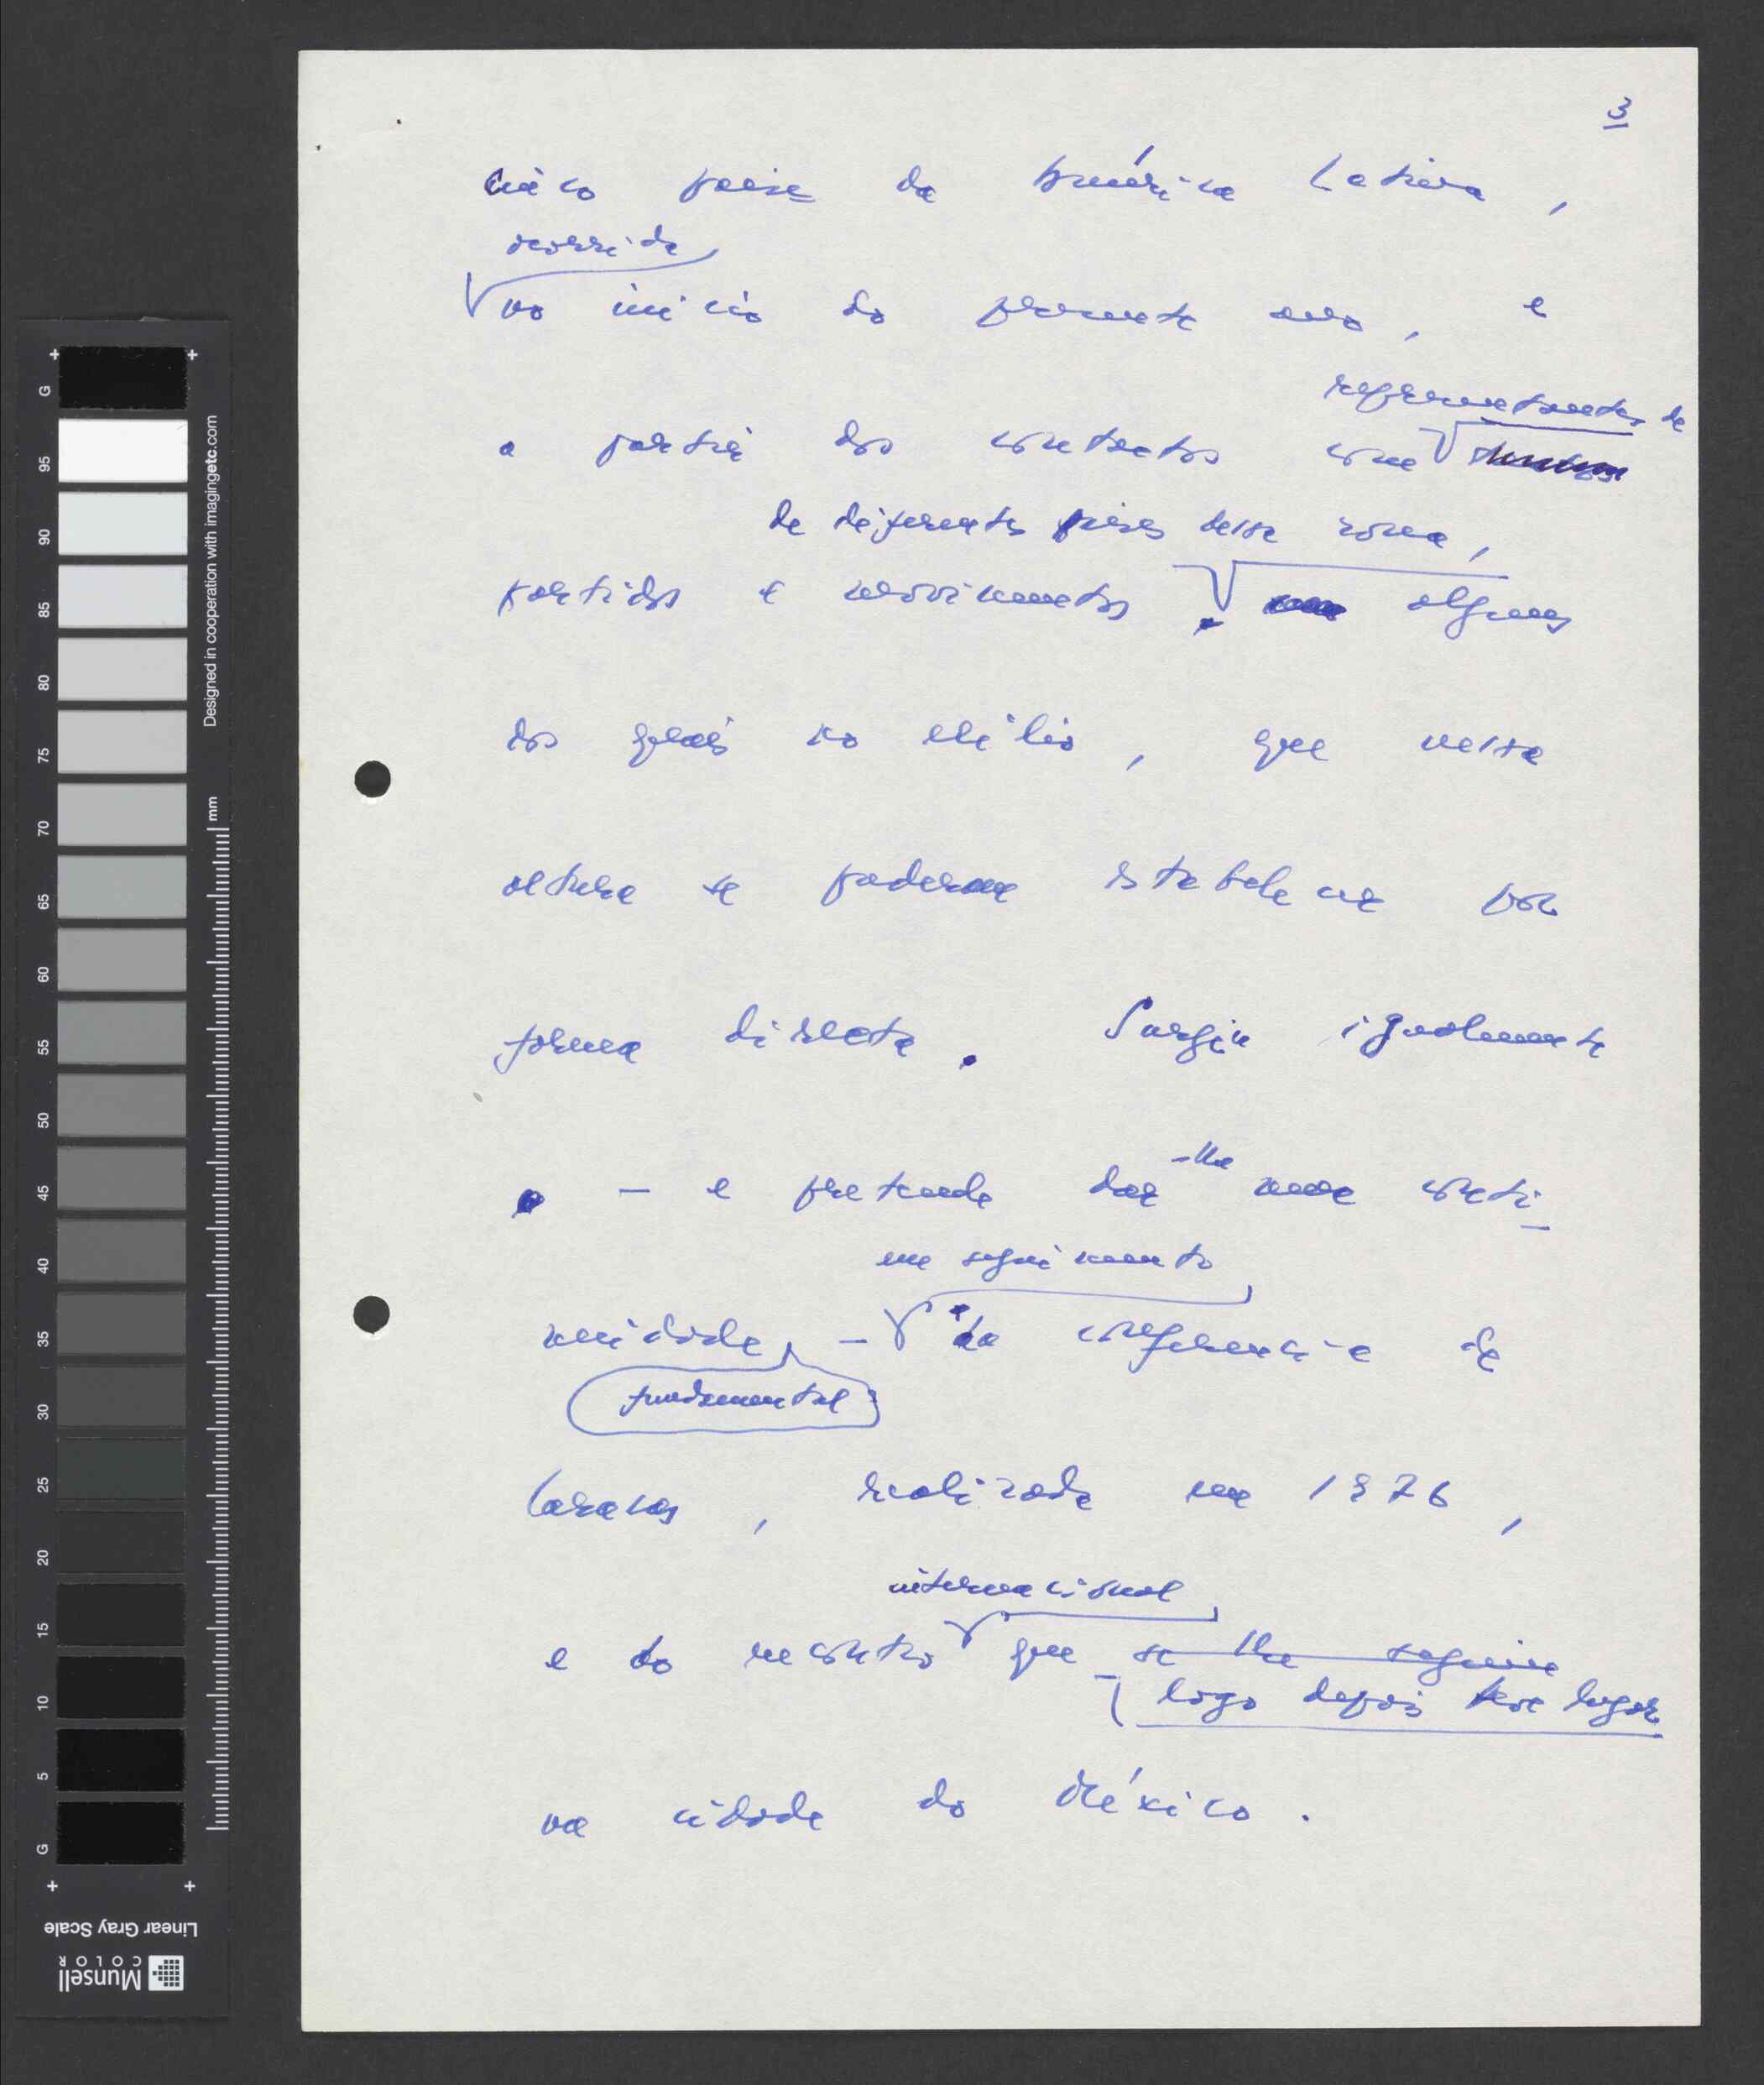 3
cinco países da América Latina,
ocorrida
no início do presente ano, e
representantes de
a partir dos contactos com
de diferentes países dessa zona,
partidos e movimentos, alguns
dos quais no exílio, que nessa
altura se puderam estabelecer por
forma directa. Surgiu igualmente
-lhe
– e pretende dar uma conti-
em seguimento
nuidade, – da conferência de
fundamental
Caracas, realizada em 1976,
internacional
e do encontro que se lhe seguiu
logo depois teve lugar
na cidade do México.
G
95
90
85
80
75
70
65
60
55
50
45
40
35
30
25
20
15
10
5
G
Designed in cooperation with imagingetc.com
mm
Linear Gray Scale
Munsell
COLOR